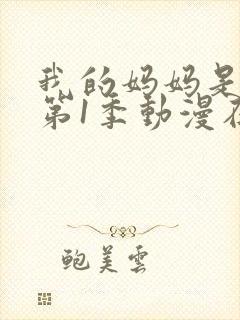 我的妈妈是
第1季動漫在
鲍美雲